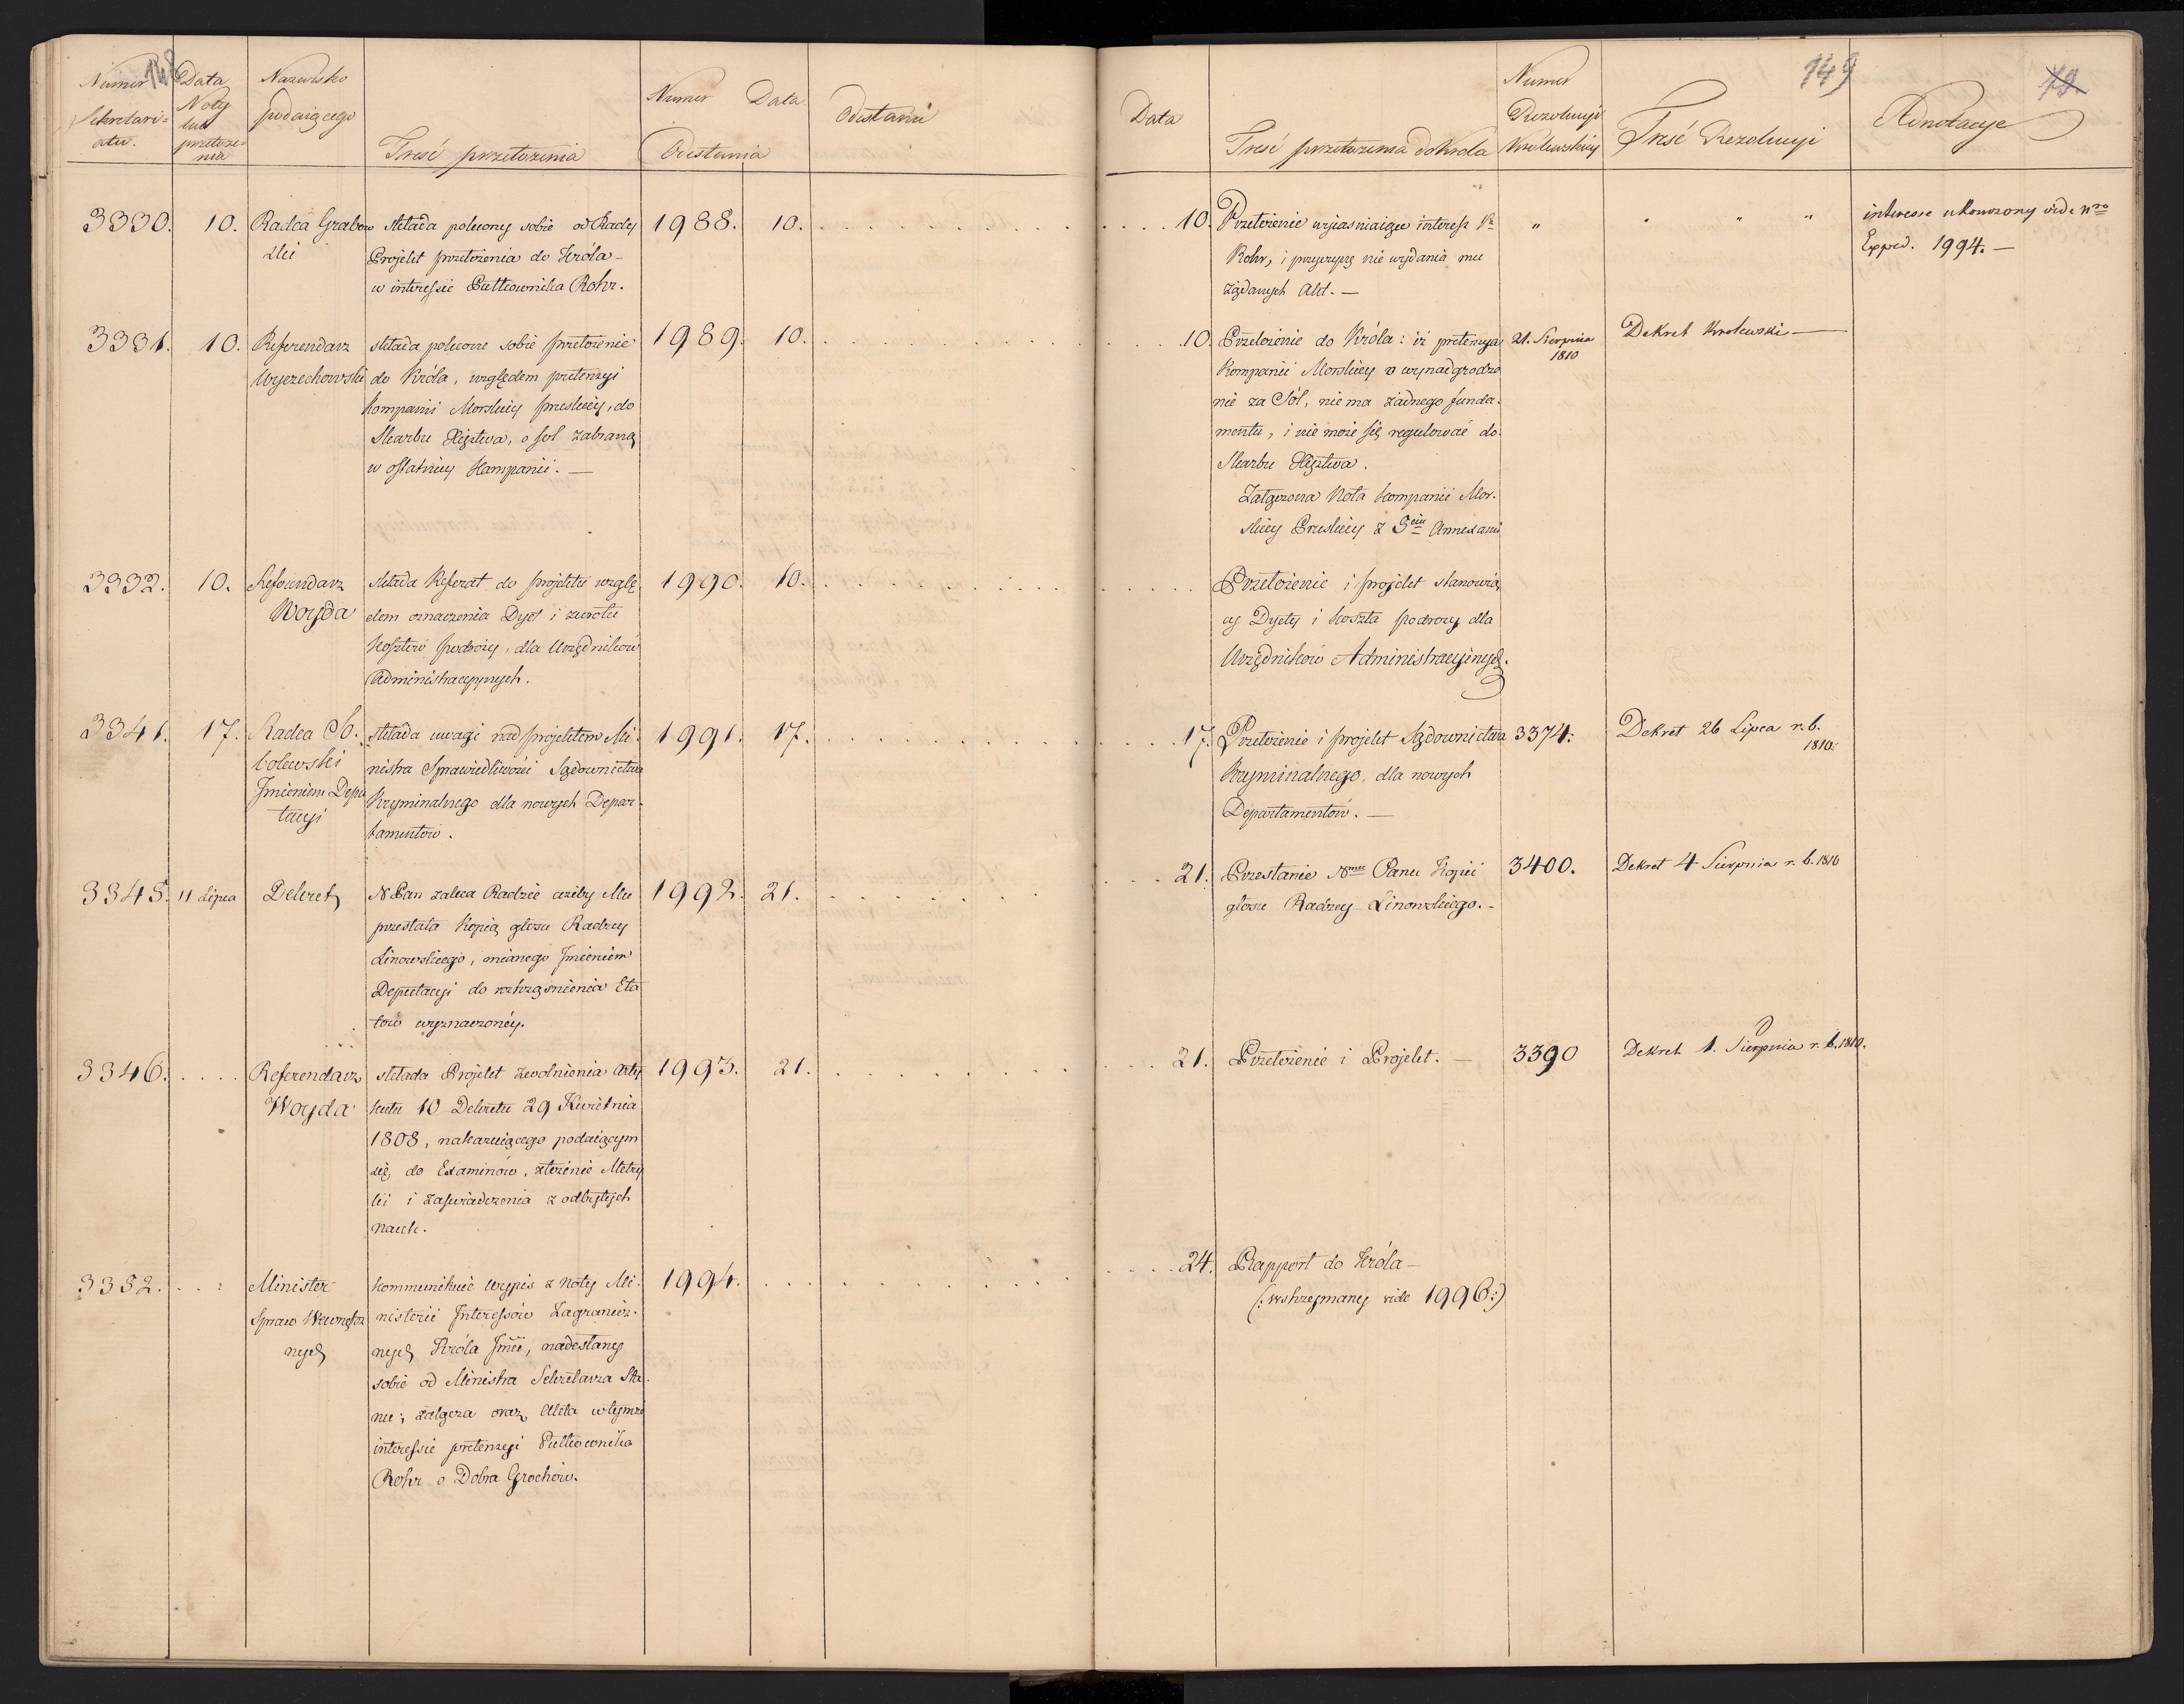 148
Numer Sekretari=
atu.
Data Noty lub przełoże=
nia
Nazwisko podaiącego
Treść przełożenia
Numer Data
Odesłania
Odesłanie
3330. 10. Radca Grabow
ski
składa polecony sobie od Rady
Projekt przełożenia do Króla
w interessie Pułkownika Rohr.
1988. 10.
3331. 10. Referendarz
Wyczechowski
składa polecone sobie przełożenie
do Króla, względem pretensyi
kompanii Morskiey pruskiey, do
Skarbu Xięstwa, o sol zabraną
w ostatniey Kampanii. —
1989. 10.
3332. 10. Referendarz
Woyda
składa Referat do projektu wzglę
dem oznaczenia Dyet i zwrotu
Kosztow podroży, dla Urzędnikow
Administracyynych.
1990. 10.
3341. 17. Radca So
bolewski
Jmieniem Depu
tacyi
składa uwagi nad projektem Mi
nistra Sprawiedliwości Sądownictwa
Kryminalnego dla nowych Depar
tamentow.
1991. 17.
3345. 11 Lipca Dekret
N Pan zaleca Radzie ażeby Mu
przesłała Kopią głosu Radzcy
Linowskiego, mianego Jmieniem
Deputacyi do roztrząśnienia Eta
tow wyznaczonéy.
1992. 21.
3346. Referendarz
Woyda
składa Projekt zwolnienia Arty
kułu 10 Dekretu 29 Kwietnia
1808, nakazuiącego podaiącym
się do Examinow, złożenie Metry
ki i zaświadczenia z odbytych
nauk.
1993. 21.
3352. Minister
Spraw Wewnętrz
nych
kommunikuie wypis z Noty Mi
nisterii Interessów Zagranicz
nych Króla Jmci, nadesłany
sobie od Ministra Sekretarza Sta
nu; załącza oraz Akta w tymże
interessie pretensyi Pułkownika
Rohr o Dobra Grochow.
1994.
149
79
Data
Treść przełożenia do Krola
Numer Rezolucyi Królewskiey
Treść Rezolucyi
Adnotacye
10. Przełożenie wyiaśniaiące interess
Rohr, i przyczynę nie wydania mu
żądanych Akt. —
" " " "
interesse ukonczony vide Nro
Exped. 1994. —
10. Przełożenie do Króla: iż pretensya
Kompanii Morskiey o wynadgrodze
nie za Sól, nie ma żadnego funda
mentu, i nie może się regulować do
Skarbu Xięztwa.
Załączona Nota Kompanii Mor
skiey Pruskiey z 5ciu Annexami
21. Sierpnia
1810
Dekret Krolewski —
Przełożenie i projekt stanowią
cy Dyety i koszta podrozy dla
Urzędników Administracyinych.
17. Przełożenie i projekt Sądownictwa
Kryminalnego, dla nowych
Departamentów. —
3374.
Dekret 26 Lipca r. b.
1810.
21. Przesłanie Nmu Panu Kopii
głosu Radzcy Linowskiego. -
3400.
Dekret 4 Sierpnia r. b. 1810
21. Przełożenie i Projekt. —
3390
Dekret 1. Sierpnia r. b. 1810.
24. Rapport do Króla —
(: wstrzymany vide 1996 :)